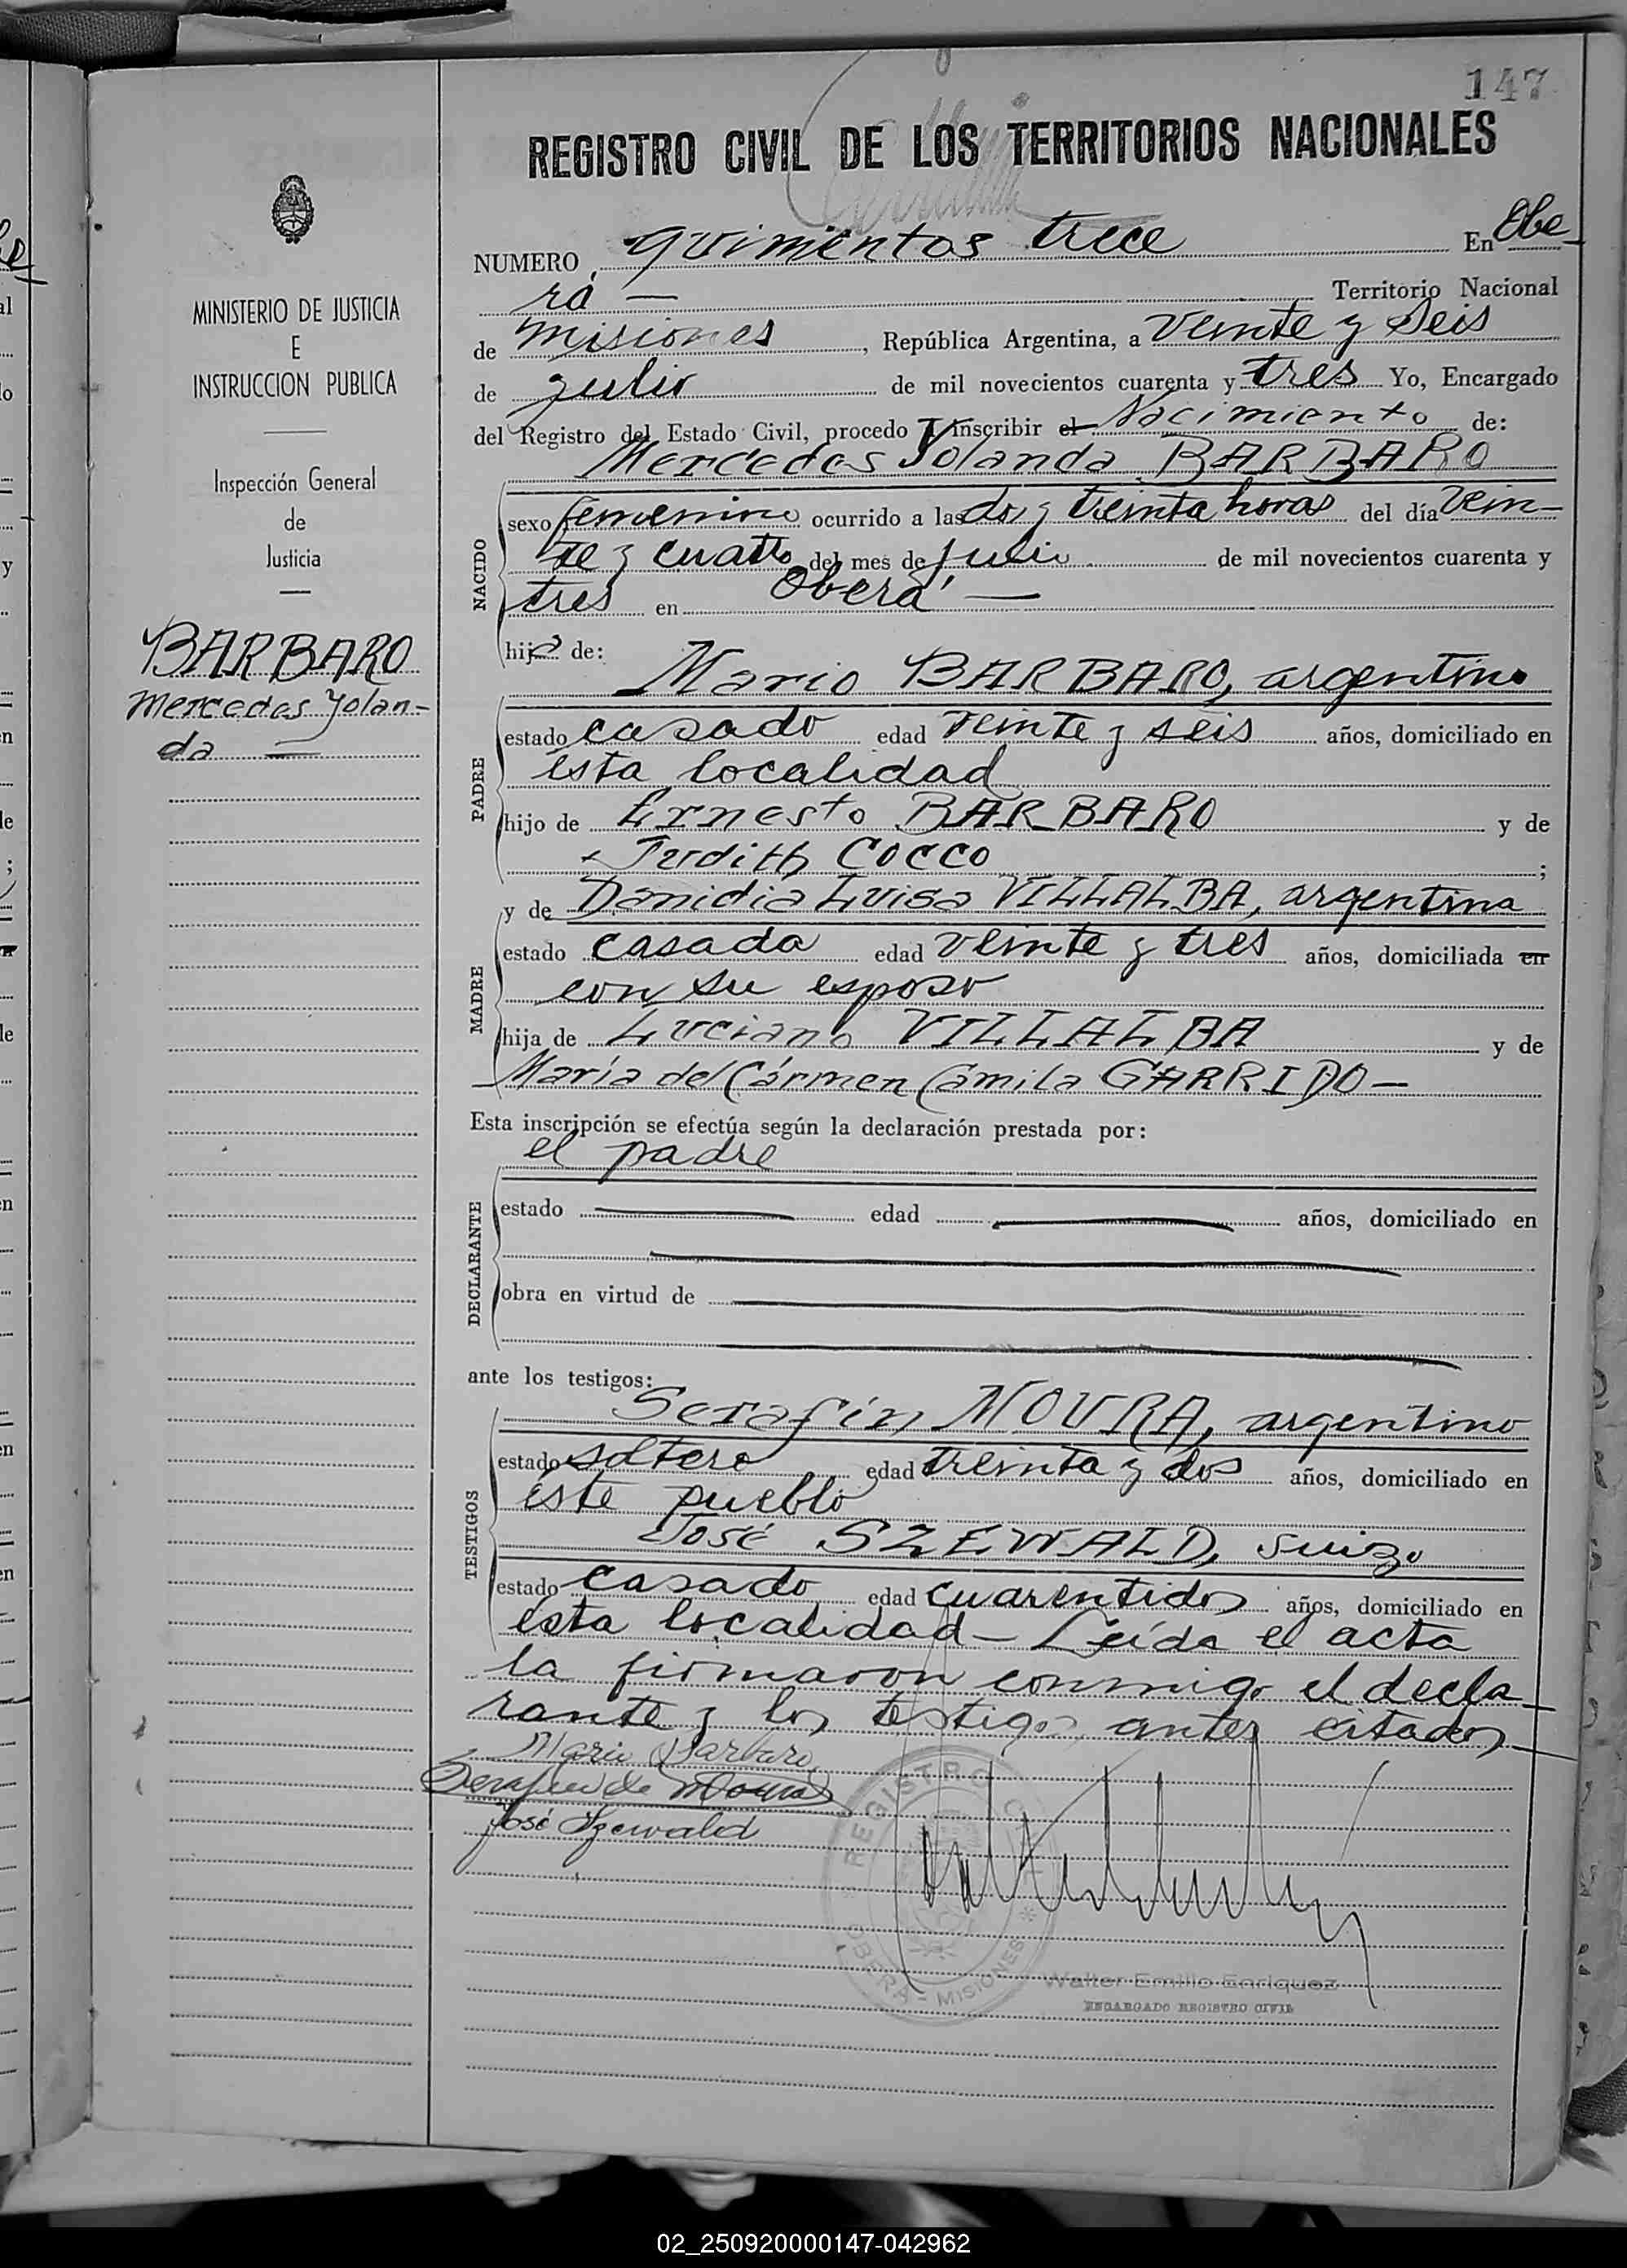 147
REGISTRO CIVIL DE LOS TERRITORIOS NACIONALES
MINISTERIO DE JUSTICIA
E
INSTRUCCION PUBLICA
Inspección General
de
Justicia
BARBARO
Mercedes Yolan-
da —
NUMERO quinientos trece En Obe-
rá — Territorio Nacional
de Misiones, República Argentina, a veinte y seis
de julio de mil novecientos cuarenta y tres Yo, Encargado
del Registro del Estado Civil, procedo a inscribir el Nacimiento de:
Mercedes Yolanda BARBARO
NACIDO
sexo femenino ocurrido a las dos y treinta horas del día vein-
te y cuatro del mes de julio de mil novecientos cuarenta y
tres en Oberá —
hija de:
Mario BARBARO, argentino
PADRE
estado casado edad veinte y seis años, domiciliado en
ésta localidad
hijo de Ernesto BARBARO y de
Judith COCCO ;
y de Danidia Luisa VILLALBA, argentina
MADRE
estado casada edad veinte y tres años, domiciliada en
con su esposo
hija de Luciano VILLALBA y de
María del Cármen Camila GARRIDO —
Esta inscripción se efectúa según la declaración prestada por:
el padre
DECLARANTE
estado edad años, domiciliado en
obra en virtud de
ante los testigos:
Serafín MOURA, argentino
TESTIGOS
estado soltero edad treinta y dos años, domiciliado en
éste pueblo
José SZEWALD, suizo
estado casado edad cuarentidos años, domiciliado en
ésta localidad — Leída el acta
la firmaron conmigo el decla-
rante y los testigos antes citados —
Mario Barbaro
Serafin de Moura
José Szewald
REGISTRO CIVIL
OBERÁ - MISIONES
Walter Emilio Enriquez
ENCARGADO REGISTRO CIVIL
02_250920000147-042962